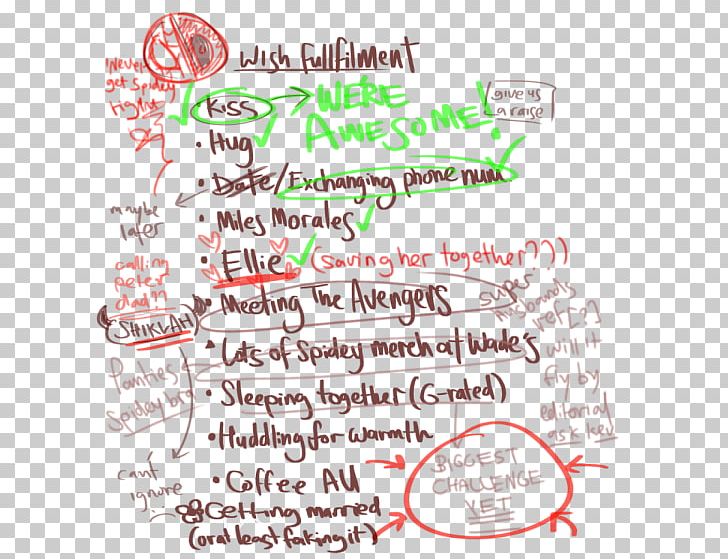 Wish Fullfilment
Never
get Spidey
Fight
• Kiss
WE'RE
AWESOME!
give us
a raise
• Hug
• Date/Exchanging phone num
maybe
later
• Miles Morales
• Ellie (saving her together???)
calling
peter
dad??
• Meeting The Avengers
super
husbands
ref[??]
SHIKLAH
• Lots of Spidey merch at Wade's
will it
fly by
editorial
ask kev
Panties &
Spidey bra
• Sleeping together (G-rated)
• Huddling for warmth
BIGGEST
CHALLENGE
YET
can't
ignore
• Coffee AU
Getting married
(or at least faking it)